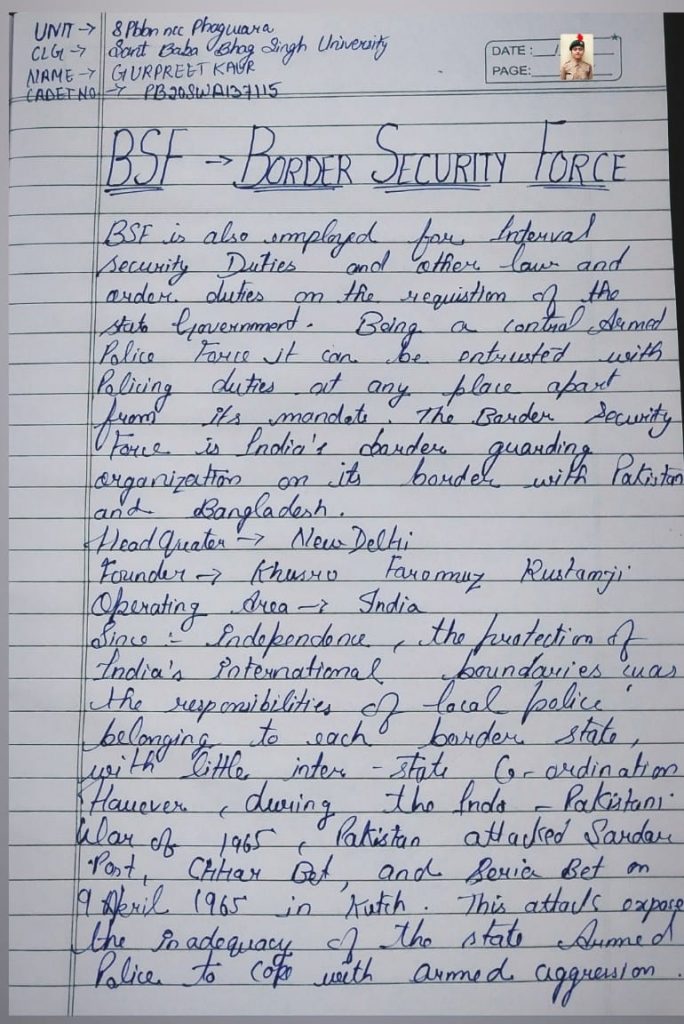 UNIT → 8 Pbbn ncc Phagwara
CLG → Sant Baba Bhag Singh University
NAME → GURPREET KAUR
CADET NO → PB20SWA137115
DATE :
PAGE:
BSF → BORDER SECURITY FORCE
BSF is also employed for Interval
security Duties and other law and
order duties on the requistion of the
state Government. Being a central Armed
Police Force it can be entrusted with
Policing duties at any place apart
from its mandate, The Border Security
Force is India's border guarding
organization on its border with Pakistan
and Bangladesh.
Head Quater → New Delhi
Founder → Khusro Faromuz Rustamji
Operating Area → India
Since :- independence, the protection of
India's international boundaries was
the responsibilities of local police
belonging to each border state,
with little inter-state Co-ordination
However, during the Indo-Pakistani
War of 1965, Pakistan attacked Sardar
Post, Chhar Bet, and Beria Bet on
9 April 1965 in Kutch. This attack expose
the inadequacy of the state Armed
Police to cope with armed aggression.